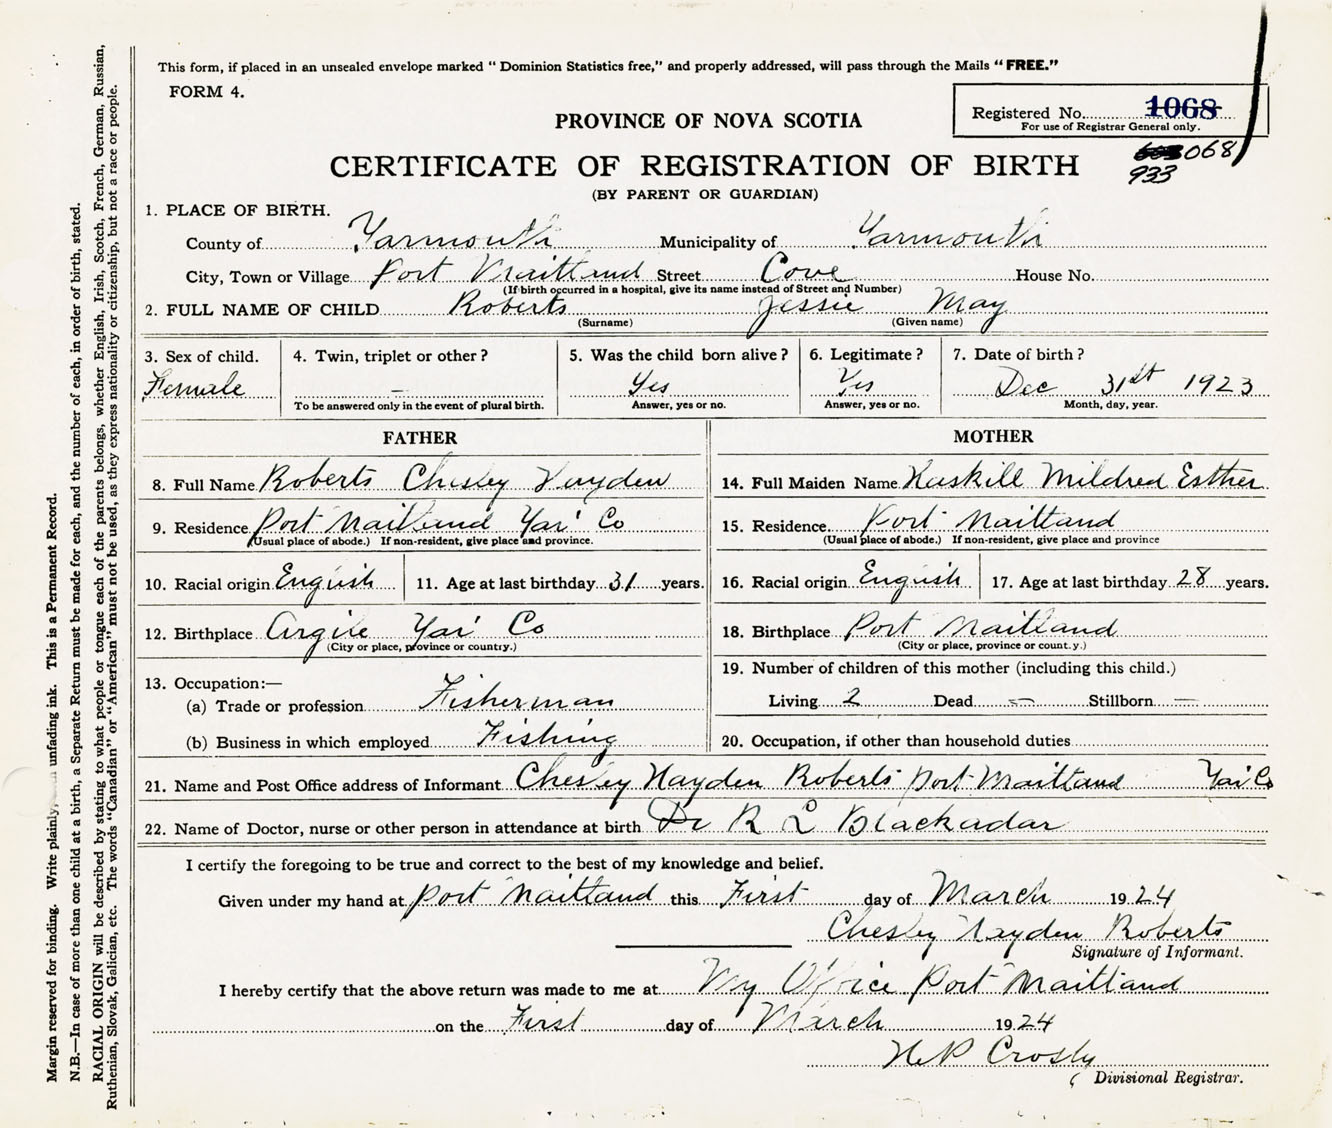 This form, if placed in an unsealed envelope marked "Dominion Statistics free," and properly addressed, will pass through the Mails "FREE."
FORM 4.
Registered No. 1068
For use of Registrar General only.
068
933
PROVINCE OF NOVA SCOTIA
CERTIFICATE OF REGISTRATION OF BIRTH
(BY PARENT OR GUARDIAN)
1. PLACE OF BIRTH.
County of Yarmouth Municipality of Yarmouth
City, Town or Village Port Maitland Street Cove House No.
(If birth occurred in a hospital, give its name instead of Street and Number)
2. FULL NAME OF CHILD Roberts Jessie May
(Surname) (Given name)
3. Sex of child. 4. Twin, triplet or other? 5. Was the child born alive? 6. Legitimate? 7. Date of birth?
Female – Yes Yes Dec 31st 1923
To be answered only in the event of plural birth. Answer, yes or no. Answer, yes or no. Month, day, year.
FATHER MOTHER
8. Full Name Roberts Chesley Hayden 14. Full Maiden Name Haskill Mildred Esther
9. Residence Port Maitland Yar' Co 15. Residence. Port Maitland
(Usual place of abode.) If non-resident, give place and province. (Usual place of abode.) If non-resident, give place and province
10. Racial origin English 11. Age at last birthday 31 years. 16. Racial origin English 17. Age at last birthday 28 years.
12. Birthplace Argile Yar' Co 18. Birthplace Port Maitland
(City or place, province or country.) (City or place, province or country.)
19. Number of children of this mother (including this child.)
13. Occupation:—
(a) Trade or profession Fisherman Living 2 Dead – Stillborn –
(b) Business in which employed Fishing 20. Occupation, if other than household duties
21. Name and Post Office address of Informant Chesley Hayden Roberts Port Maitland Yar Co
22. Name of Doctor, nurse or other person in attendance at birth Dr R L Blackadar
I certify the foregoing to be true and correct to the best of my knowledge and belief.
Given under my hand at Port Maitland this First day of March 1924
Chesley Hayden Roberts
Signature of Informant.
I hereby certify that the above return was made to me at My Office Port Maitland
on the First day of March 1924
Crosby
Divisional Registrar.
Margin reserved for binding. Write plainly, unfading ink. This is a Permanent Record.
N.B.—In case of more than one child at a birth, a Separate Return must be made for each, and the number of each, in order of birth, stated.
RACIAL ORIGIN will be described by stating to what people or tongue each of the parents belongs, whether English, Irish, Scotch, French, German, Russian,
Ruthenian, Slovak, Galician, etc. The words "Canadian" or "American" must not be used, as they express nationality or citizenship, but not a race or people.